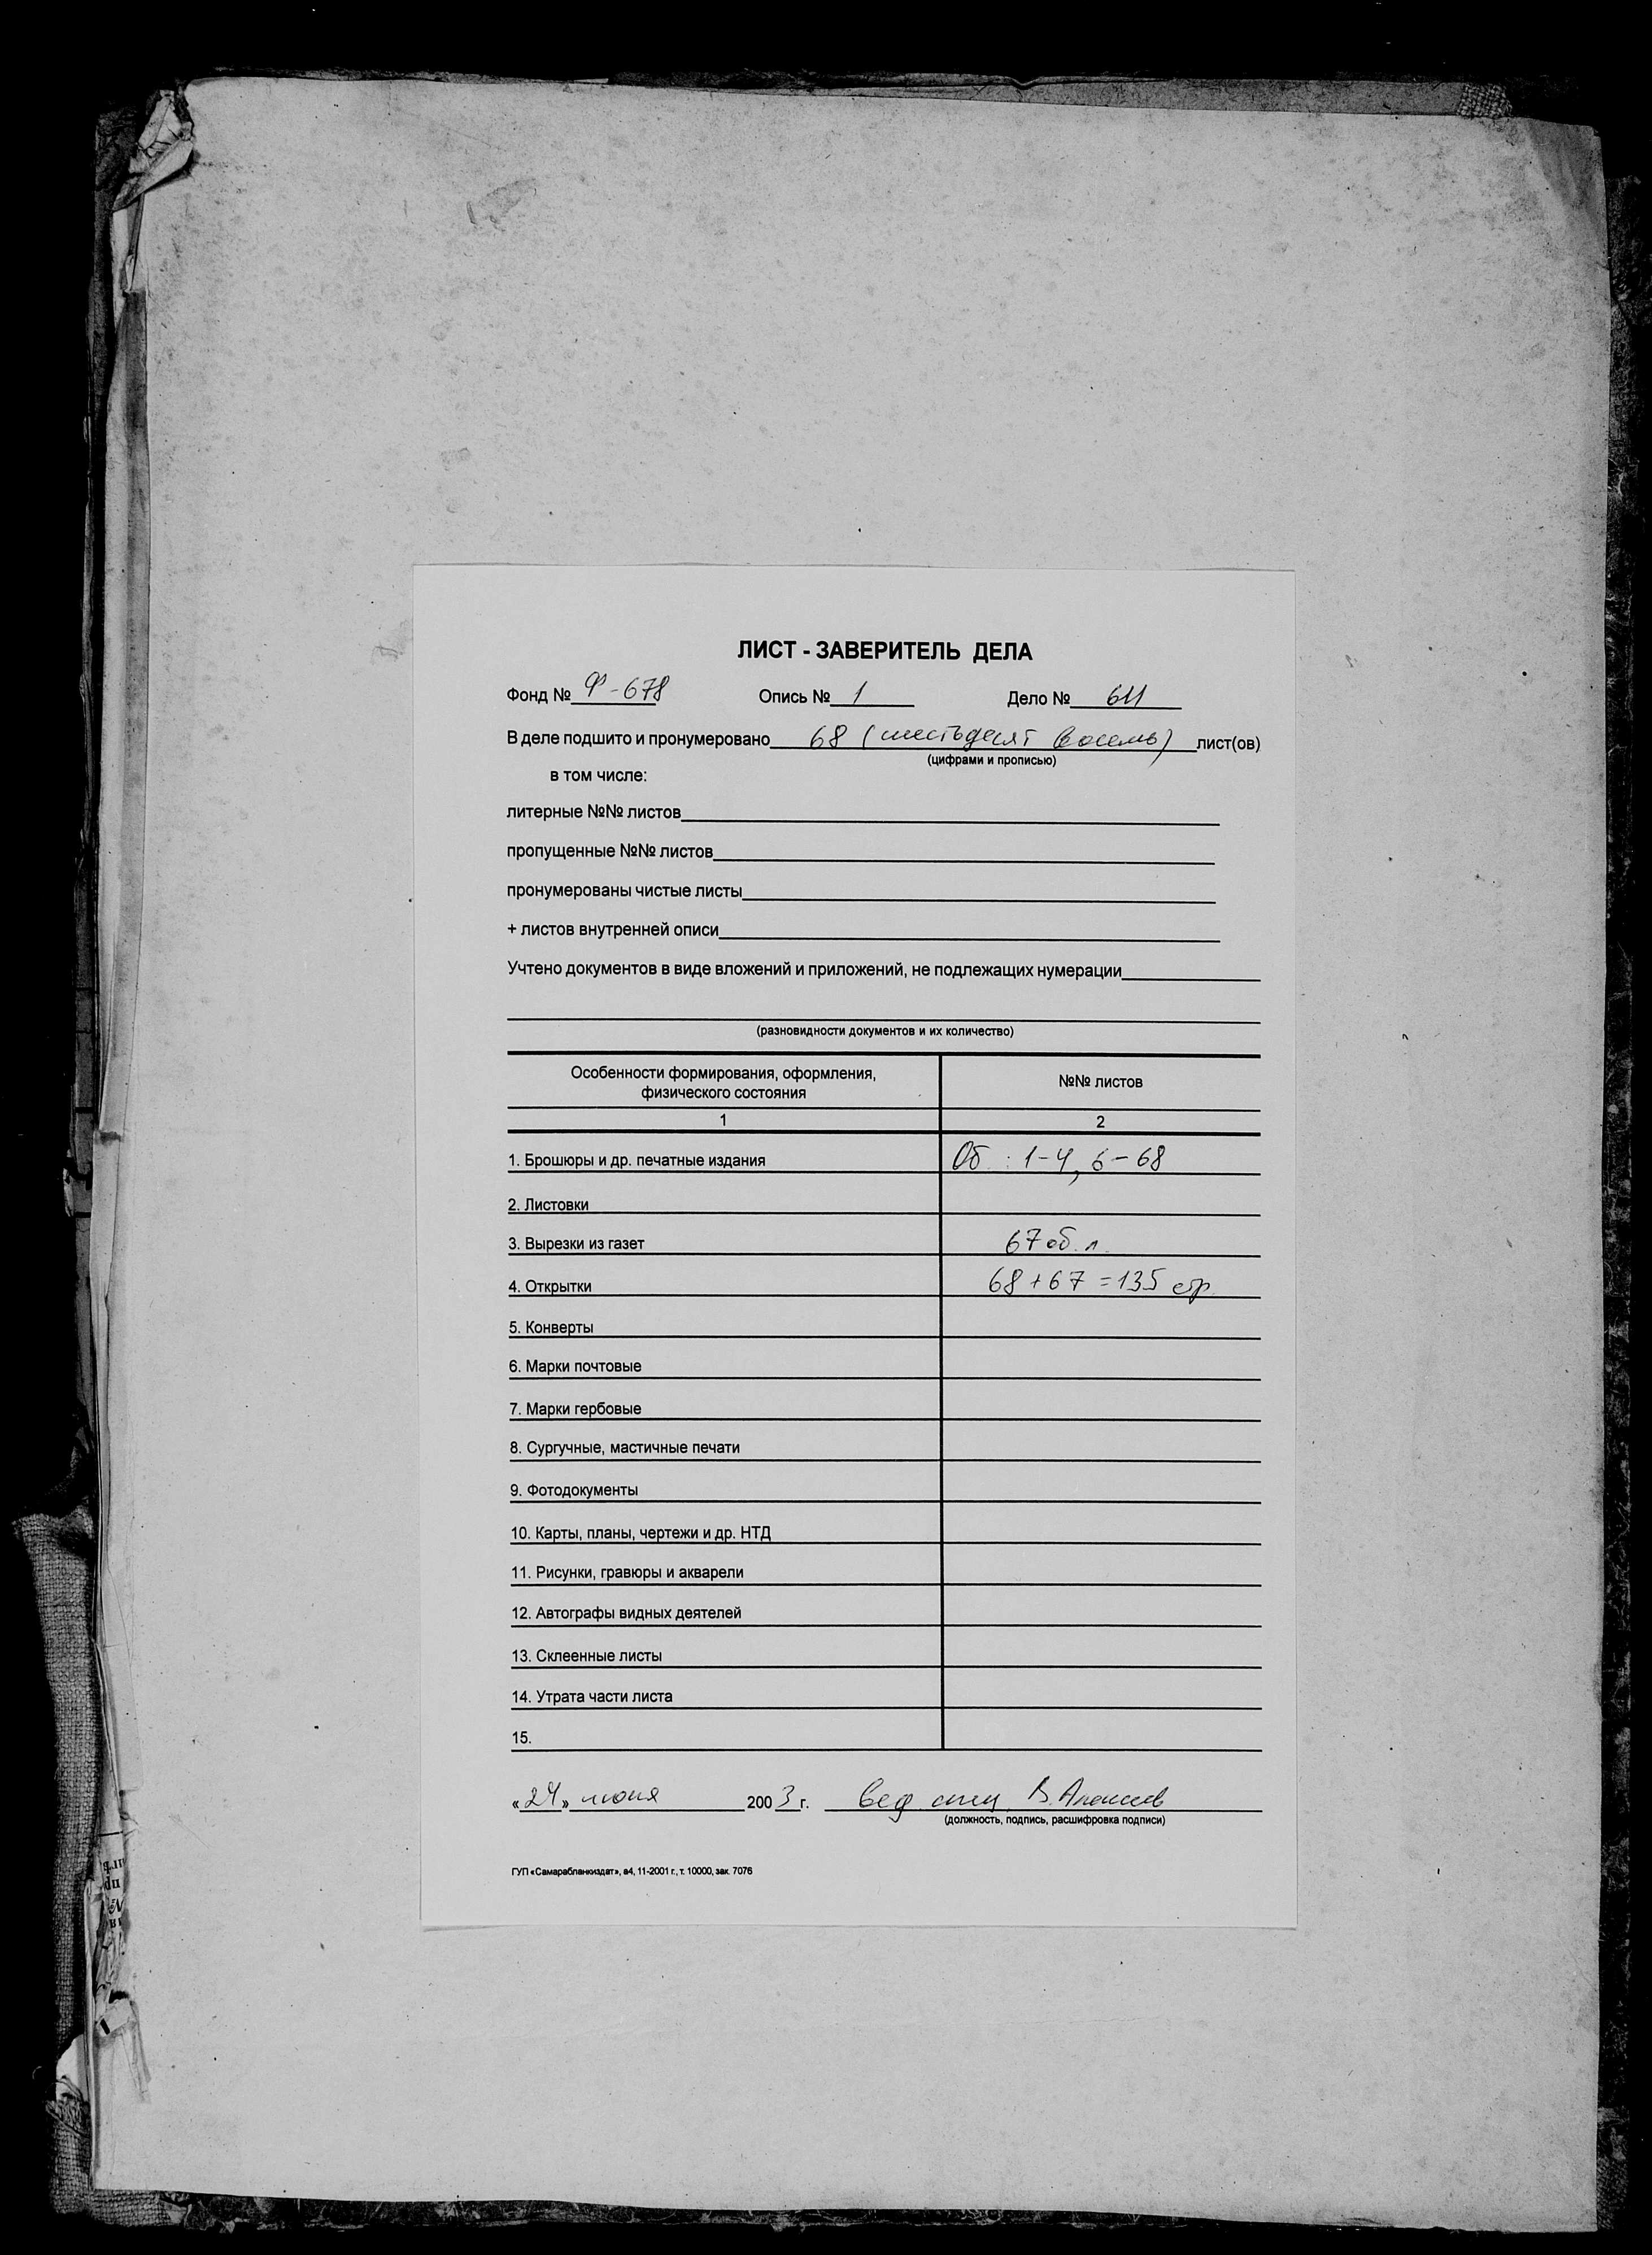 ЛИСТ - ЗАВЕРИТЕЛЬ ДЕЛА
Фонд № Ф-678 Опись № 1 Дело № 611
В деле подшито и пронумеровано 68 (шестьдесят восемь) лист(ов)
(цифрами и прописью)
в том числе:
литерные №№ листов
пропущенные №№ листов
пронумерованы чистые листы
+ листов внутренней описи
Учтено документов в виде вложений и приложений, не подлежащих нумерации
(разновидности документов и их количество)
Особенности формирования, оформления, №№ листов
физического состояния
1 2
1. Брошюры и др. печатные издания Об. : 1-4, 6-68
2. Листовки
3. Вырезки из газет 67 об. л.
4. Открытки 68+67=135 стр.
5. Конверты
6. Марки почтовые
7. Марки гербовые
8. Сургучные, мастичные печати
9. Фотодокументы
10. Карты, планы, чертежи и др. НТД
11. Рисунки, гравюры и акварели
12. Автографы видных деятелей
13. Склеенные листы
14. Утрата части листа
15.
«24» июня 2003 г. вед. спец. В.
(должность, подпись, расшифровка подписи)
ГУП «Самарабланкиздат», а4, 11-2001 г., т. 10000, зак. 7076